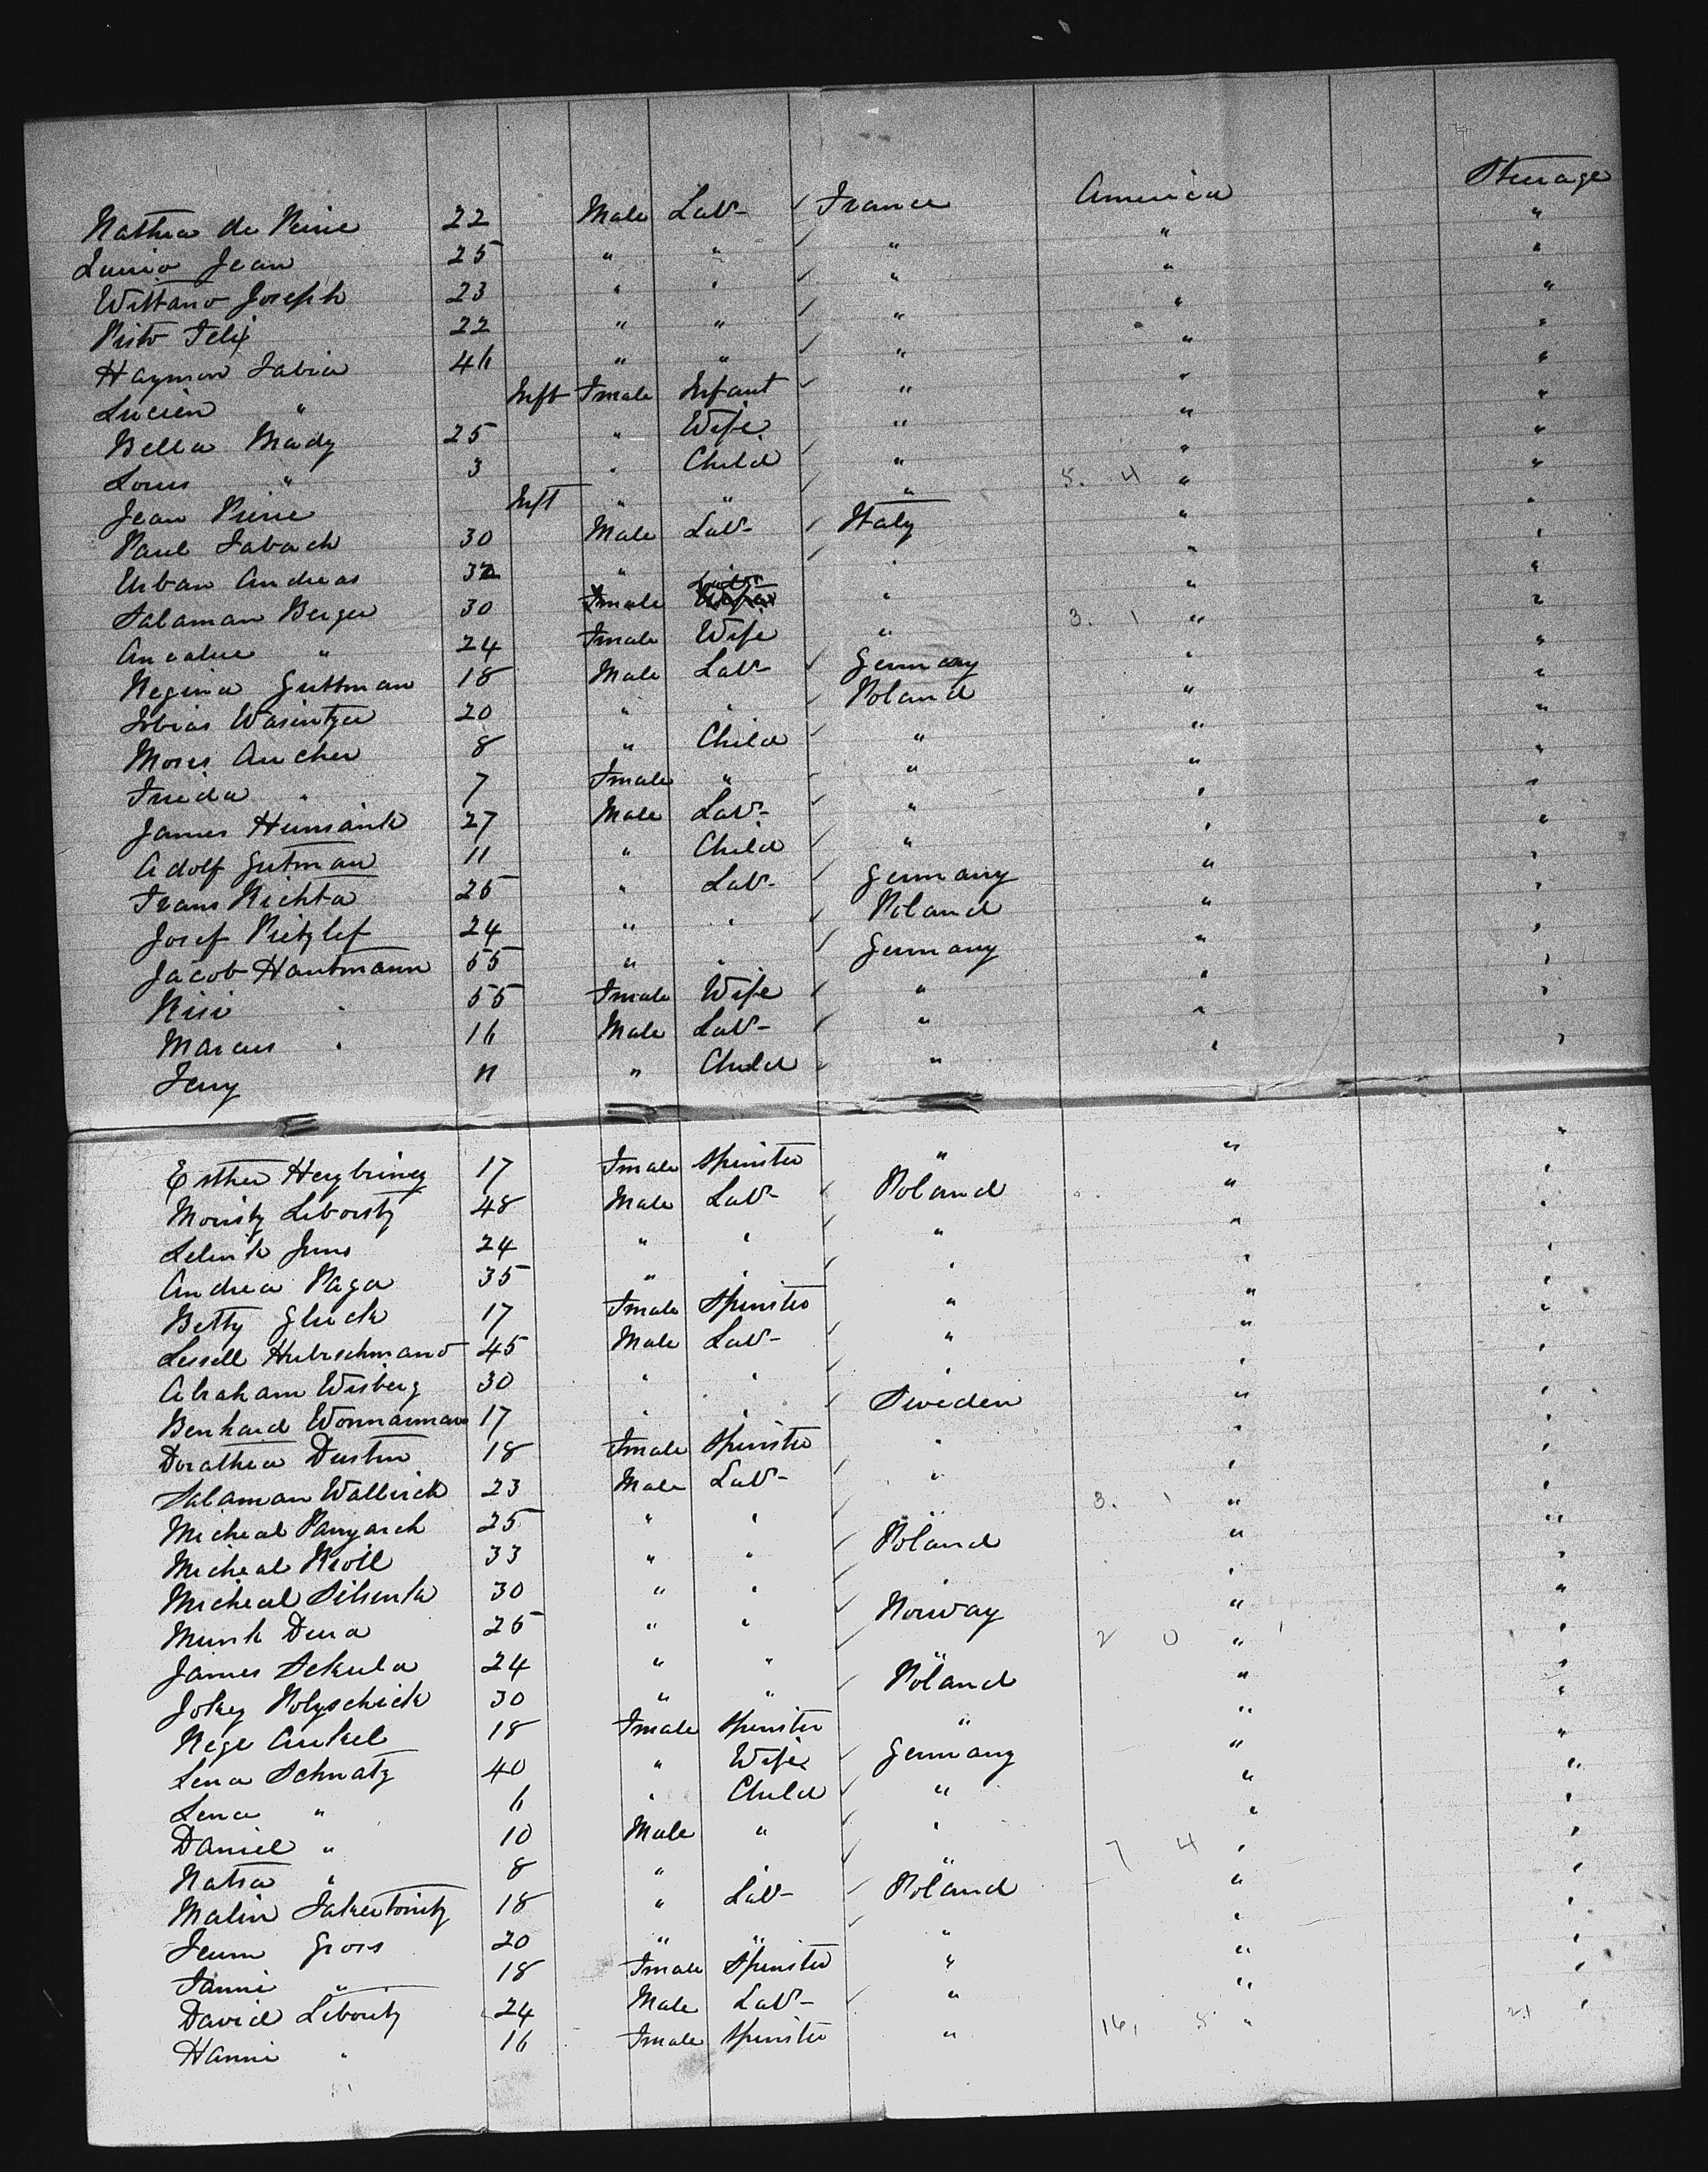 Nathia de Pierie 22 Male Lab- ✓ France America Steerage
Junio Jean 25 " " ✓ " " "
Wittano Joseph 23 " " ✓ " " "
Pisto Felix 22 " " ✓ " " "
Haymon Fabia 46 " " ✓ " " "
Lucien " Inft Fmale Infant ✓ " " "
Bella Mady 25 " Wife " " "
Louis " 3 " Child ✓ " " "
Jean Pierie Inft " " ✓ " 5. 4 " "
Paul Fabach 30 Male Lab- ✓ Italy " "
Urban Andreas 32 " " ✓ " " "
Salaman Berger 30 male Lab- " " "
" 24 Fmale Wife " 3. 1 " "
Regina Guttman 18 Male Lab- ✓ Germany " "
Tobias Wasintzer 20 " " ✓ Poland " "
Moses Aucher 8 " Child ✓ " " "
Frieda " 7 Fmale " ✓ " " "
James Humsank 27 Male Lab- ✓ " " "
Adolf Gutman 11 " Child ✓ " " "
Frans Richta 25 " Lab- ✓ Germany " "
Josef Pritzlef 24 " " ✓ Poland " "
Jacob Hautmann 55 " " ✓ Germany " "
Risi " 55 Fmale Wife ✓ " " "
Marcus " 16 Male Lab- ✓ " " "
Jeny 11 " Child ✓ " " "
Esther Heybriney 17 Fmale Spinster " " "
Moritz Liboitz 48 Male Lab- ✓ Poland " "
Lelink Juns 24 " " ✓ " " "
Andrea Paga 35 " " ✓ " " "
Betty Gluck 17 Fmale Spinster " " "
Lessell Hubschmand 45 Male Lab- ✓ " " "
Abraham Wisberg 30 " " ✓ " " "
Benhard Wonnarman 17 " " ✓ Sweden " "
Dorathea Dustin 18 Fmale Spinster " " "
Salaman Wallrick 23 Male Lab- ✓ " " "
Micheal Panyarch 25 " " ✓ " 3. 1 " "
Micheal Kroll 33 " " ✓ Poland " "
Micheal Silsenta 30 " " ✓ " " "
Munk Dura 25 " " ✓ Norway " "
James Sekula 24 " " ✓ " 2 0 " "
Jokey Polyschick 30 " " ✓ Poland " "
Rege Ankel 18 Fmale Spinster " " "
Lena Schnatz 40 " Wife ✓ Germany " "
Lena " 6 " Child ✓ " " "
Daniel " 10 Male " ✓ " " "
Natra " 8 " " ✓ " 7 4 " "
Malin 18 " Lab- ✓ Poland " "
Jeum Gross 20 " " ✓ " " "
Fanni " 18 Fmale Spinster " " "
David Liboitz 24 Male Lab- ✓ " " "
Hanni " 16 Fmale Spinster " 16, 5 " 21 "